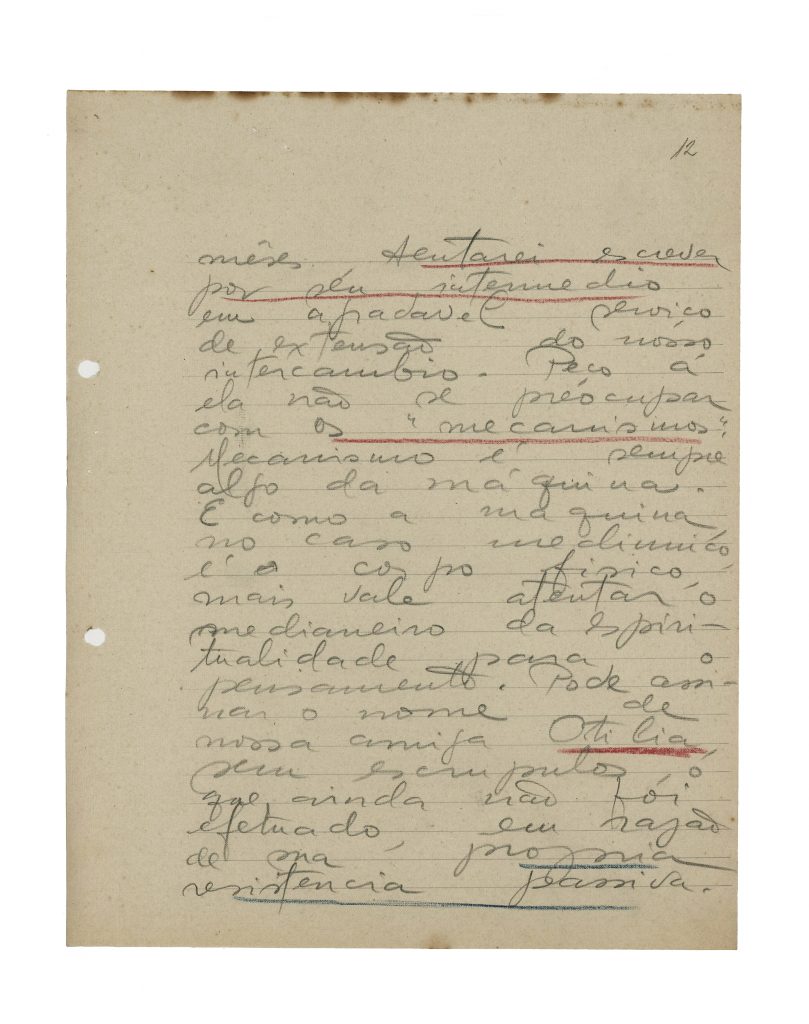 12
mêses tentarei escrever
por seu intermedio
em agradavel serviço
de extensão do nósso
intercambio. Peço á
ela não se preócupar
com os "mecanismos".
Mecanismo é sempre
algo da máquina.
E como a maquina,
no caso mediunico,
é o corpo fisico,
mais vale atentar o
medianeiro da espiri-
tualidade para o
pensamento. Póde assi-
nar o nome de
nossa amiga Otilia,
sem escrupulos, o
que ainda não foi
efetuado, em razão
de sua propria
resistencia passiva.